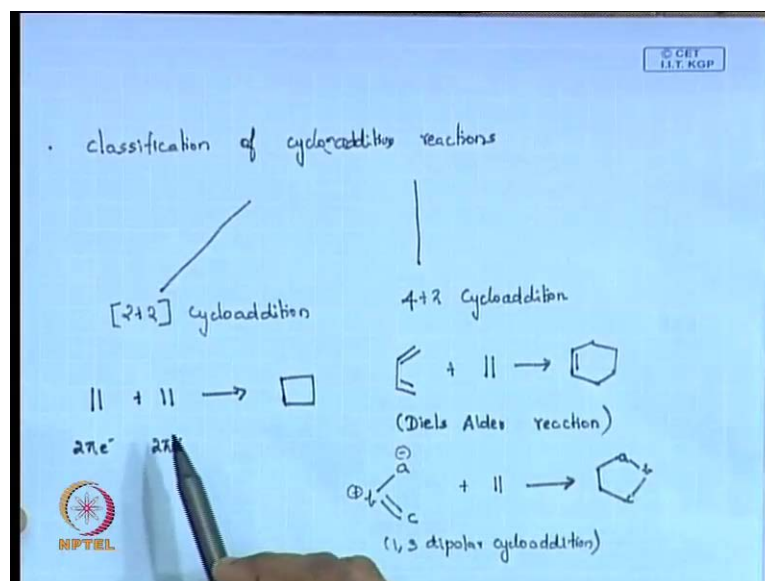 © CET
I.I.T. KGP
. classification of cyclo-addition reactions
[2+2] cycloaddition
4+2 cycloaddition
|| + || →
+ || →
2πe⁻ 2π
(Diels Alder reaction)
⊖
a
⊕ b
c
+ || →
a
b
c
(1,3 dipolar cycloaddition)
NPTEL